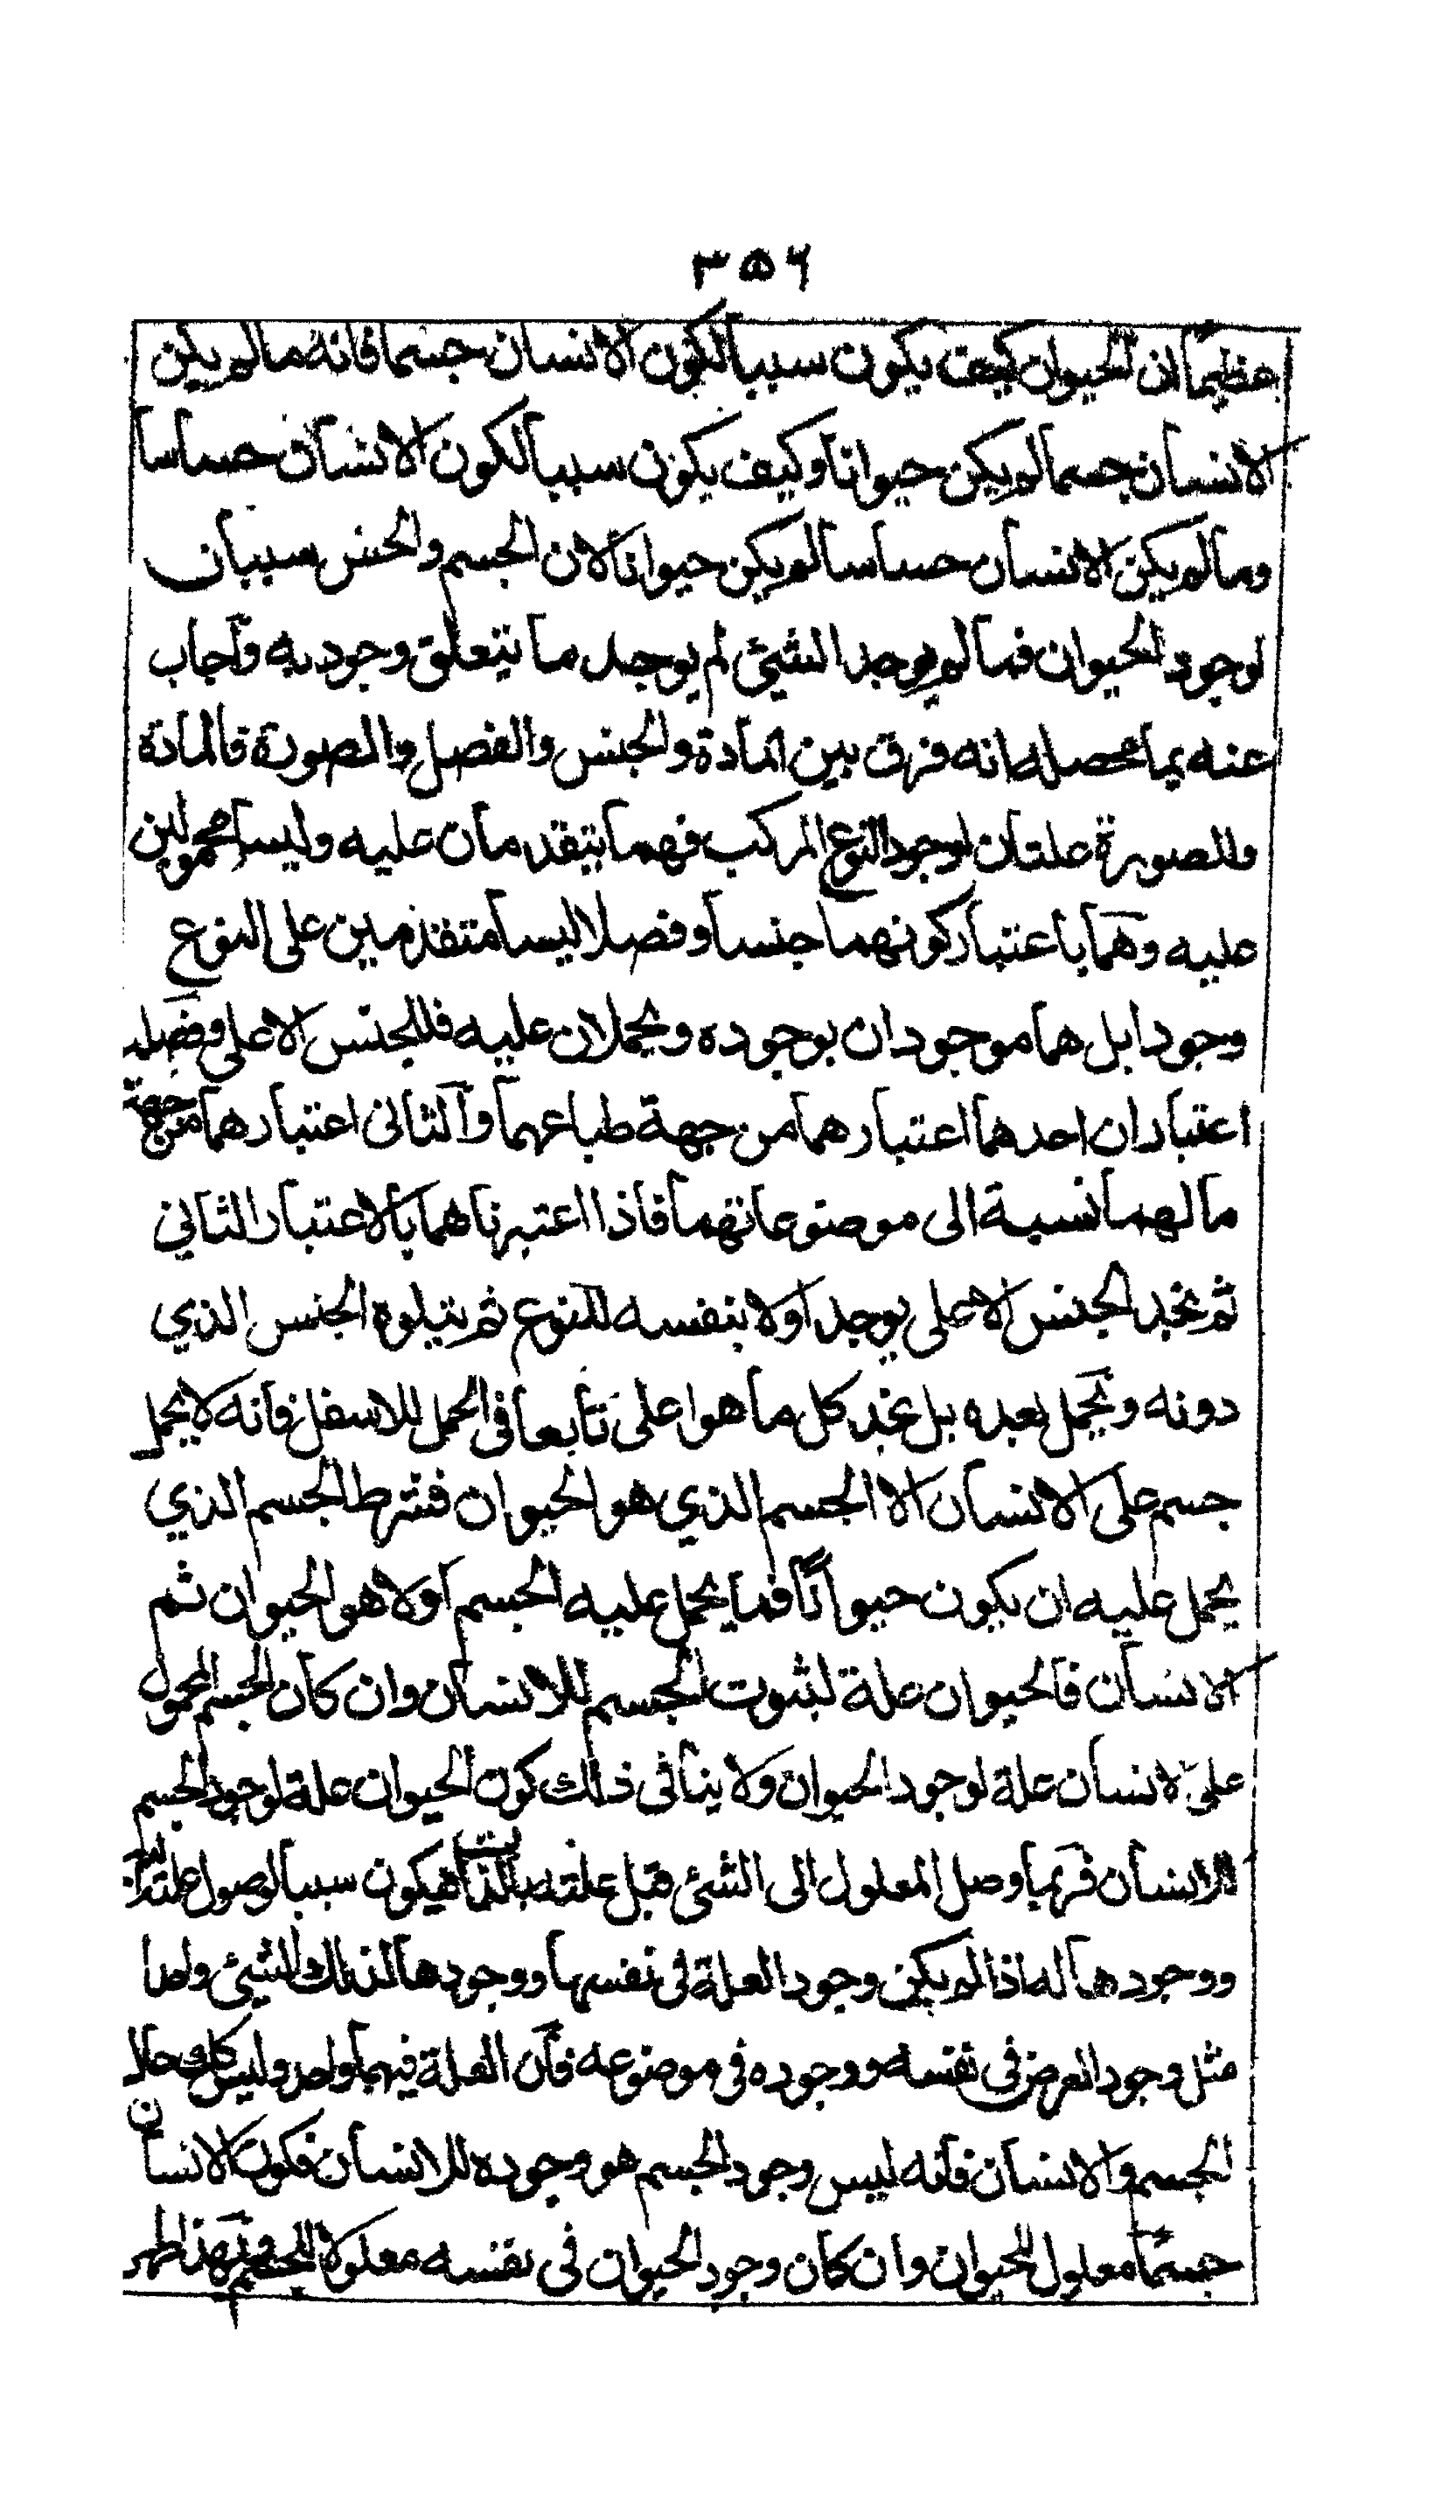 ٣٥٦
عظيمًا ان الحيوان كيف يكون سببا لكون الانسان جسما فانه ما لم يكن
الانسان جسما لم يكن حيوانا وكيف يكون سببا لكون الانسان حساسا
وما لم يكن الانسان حساسا لم يكن حيوانا لان الجسم والحس سببان
لوجود الحيوان فما لم يوجد الشيئ لم يوجد ما يتعلق وجوده به وآجاب
عنه بما محصله انه فرق بين المادة والجنس والفصل والصورة فالمادة
والصورة علتان لوجود النوع المركب فهما يتقدمان عليه وليسا محمولين
عليه وهما باعتبار كونهما جنسا وفصلا ليسا متقدمين على النوع
وجودا بل هما موجودان بوجوده ويحملان عليه فللجنس الاعلى وفصله
اعتباران احدهما اعتبارهما من جهة طباعهما والثانى اعتبارهما من جهة
ما لهما نسبة الى موضوعاتهما فاذا اعتبرناهما بالاعتبار الثاني
ثم نجد الجنس الاعلى يوجد اولا بنفسه للنوع ثم يتلوه الجنس الذي
دونه ويحمل بعده بل نجد كل ما هو اعلى تابعا فى الحمل للاسفل فانه لا يحمل
جسم على الانسان الا الجسم الذي هو الحيوان فشرط الجسم الذي
يحمل عليه ان يكون حيوانًا فما يحمل عليه الجسم اولا هو الحيوان ثم
الانسان فالحيوان علة لثبوت الجسم للانسان وان كان الجسم المحمول
على الانسان علة لوجود الحيوان ولا ينافى ذلك كون الحيوان علة لوجود الجسم
للانسان فربما وصل المعلول الى الشئ قبل علته بالذات فيكون سببا لوصول علته اليه
ووجودها له اذا لم يكن وجود العلة فى نفسها ووجودها لذلك الشيئ واحدا
مثل وجود العرض فى نفسه ووجوده فى موضوعه فان العلة فيهما واحد وليس كل حال
الجسم والانسان فانه ليس وجود الجسم هو وجوده للانسان فكون الانسان
جسمًا معلول للحيوان وان كان وجود الحيوان فى نفسه معلولا للجسم وبهذا ظهر